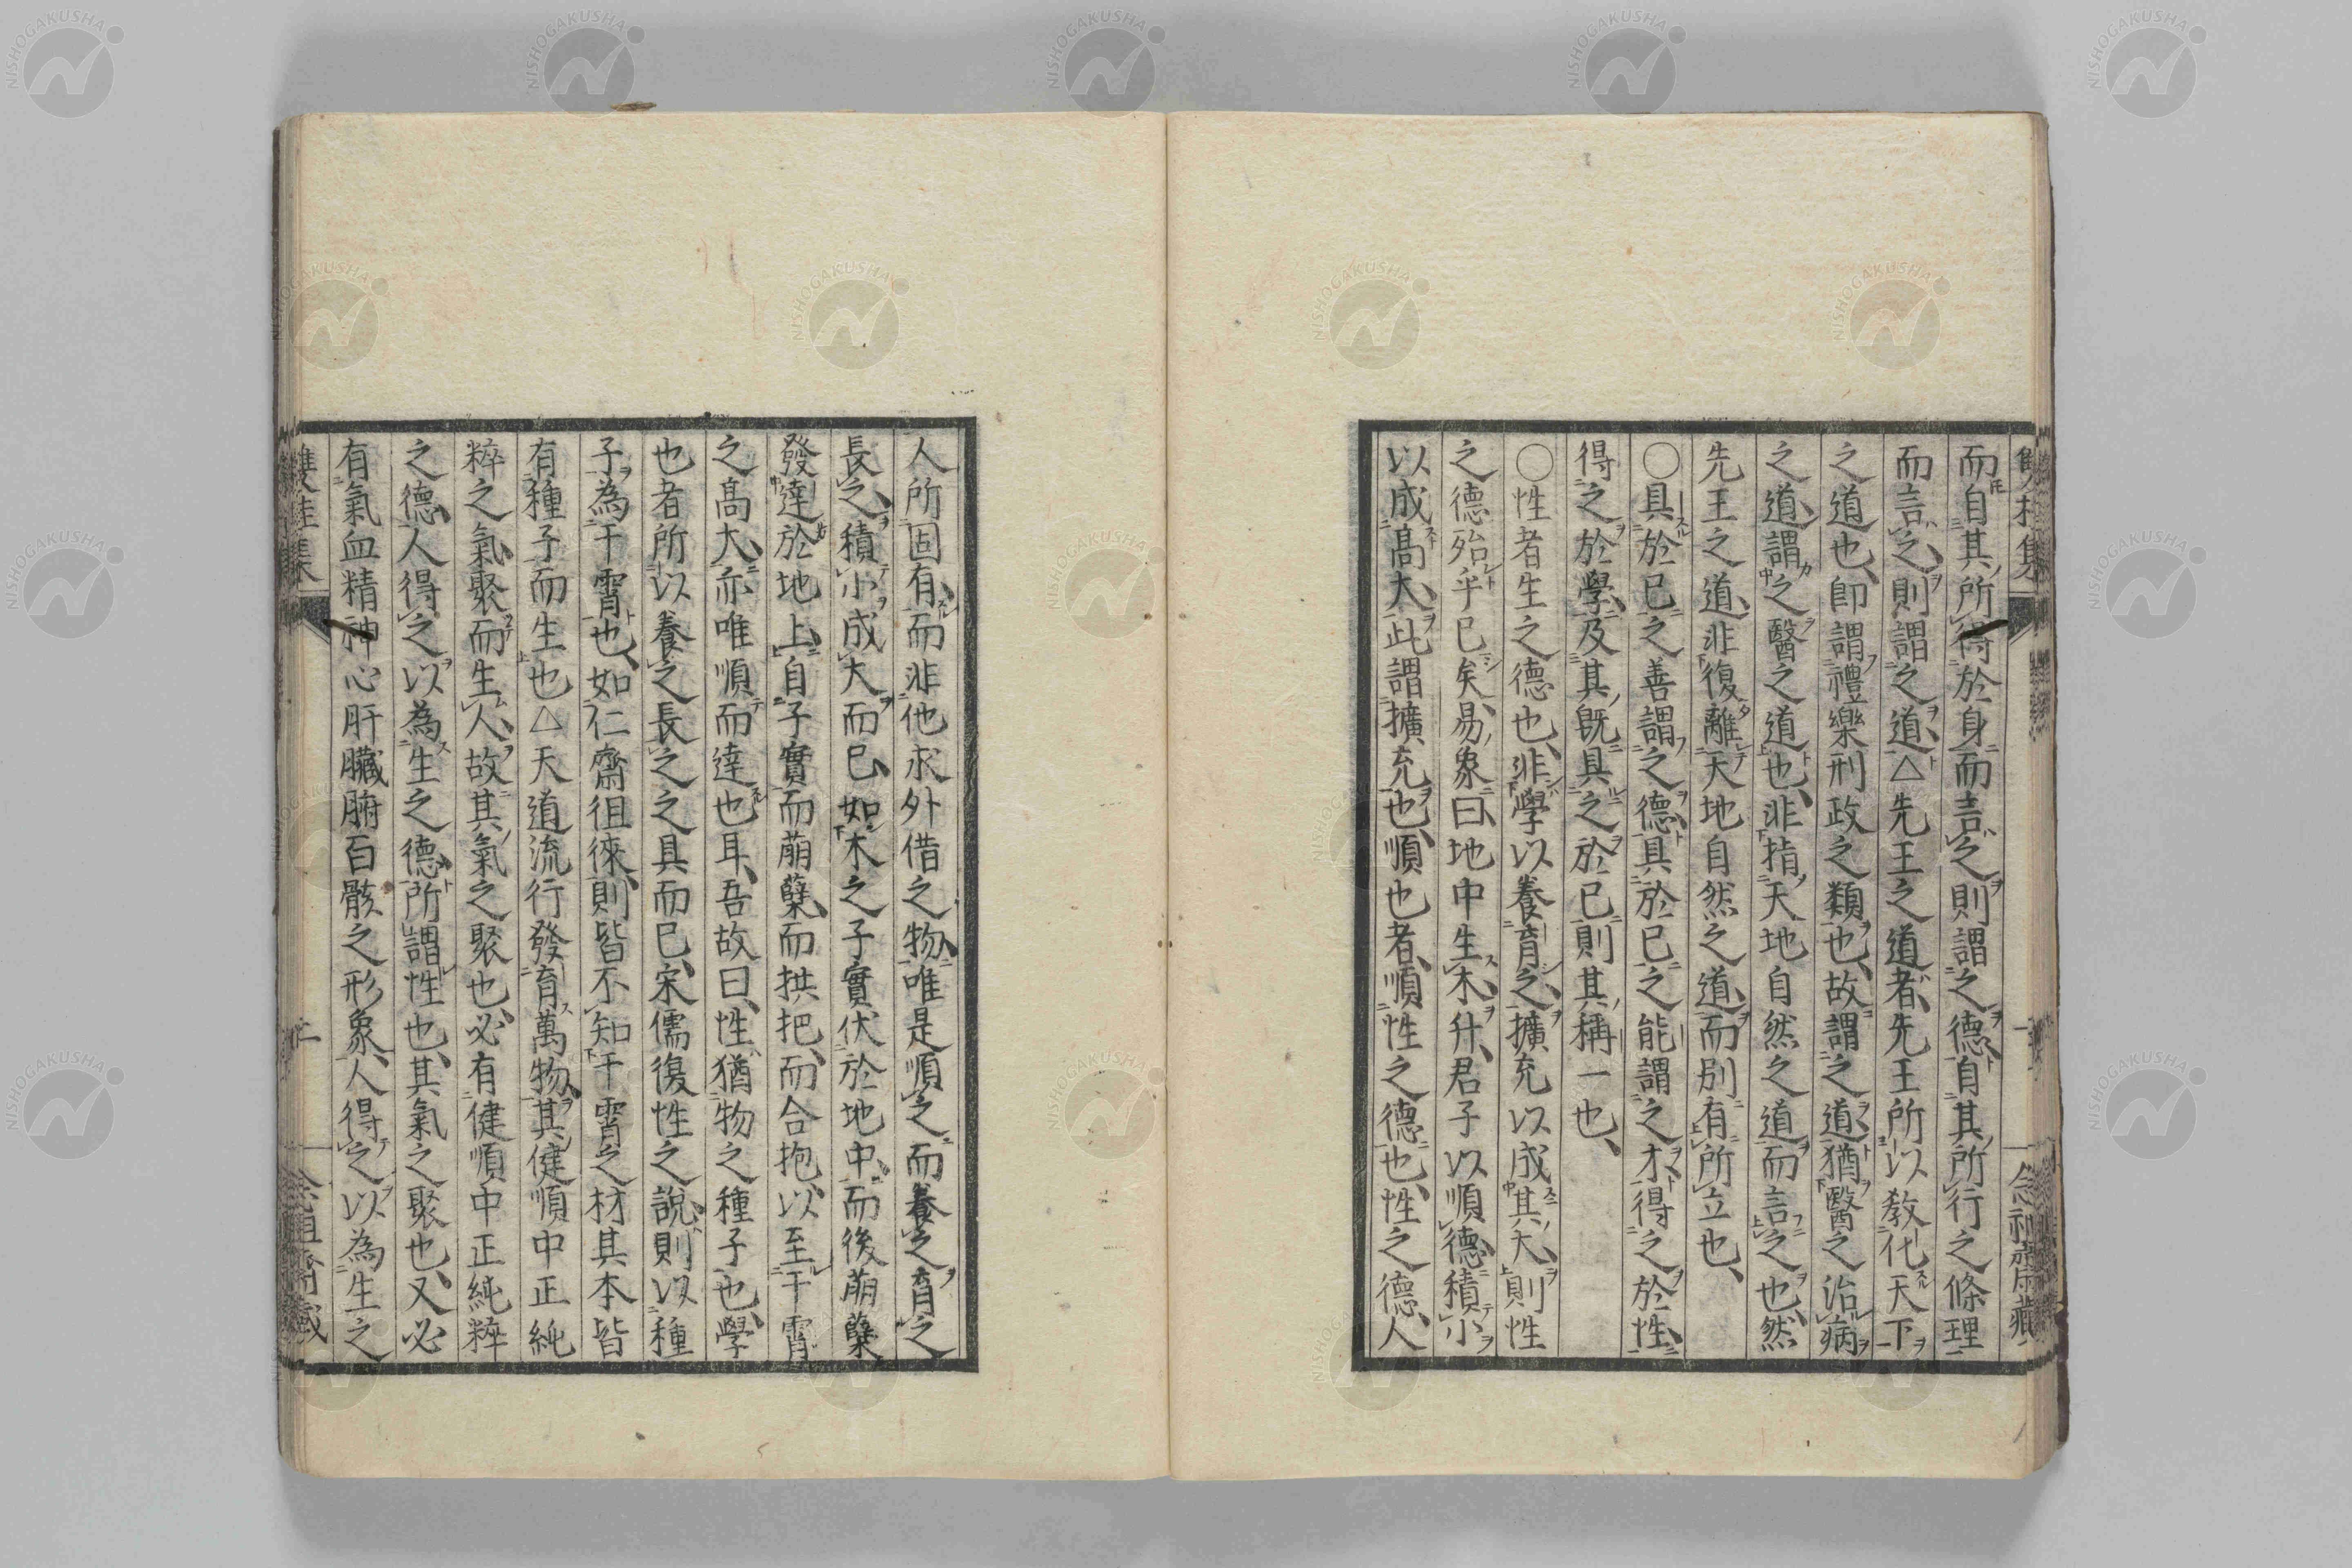 而自其所得於身而言之則謂之德自其所行之條理
而言之則謂之道△先王之道者先王所以教化天下
之道也卽謂禮樂刑政之類也故謂之道猶醫之治病
之道謂之醫之道也非指天地自然之道而言之也然
先王之道非復離天地自然之道而別有所立也
○具於已之善謂之德具於已之能謂之才得之於性
得之於學及其既具之於已則其稱一也
○性者生之德也非學以養育之擴充以成其大則性
之德殆乎已矣易象曰地中生木升君子以順德積小
以成高大此謂擴充也順也者順性之德也性之德人
人所固有而非他求外借之物唯是順之而養之育之
長之積小成大而已如木之子實伏於地中而後萠蘖
發達於地上自子實而萠蘖而拱把而合抱以至干霄
之高大亦唯順而達也耳吾故曰性猶物之種子也學
也者所以養之長之之具而已宋儒復性之說則以種
子為干霄也如仁齋徂徠則皆不知干霄之材其本皆
有種子而生也△天道流行發育萬物其健順中正純
粹之氣聚而生人故其氣之聚也必有健順中正純粹
之德人得之以為生之德所謂性也其氣之聚也又必
有氣血精神心肝臓腑百骸之形象人得之以為生之
雙桂集
NISHOGAKUSHA